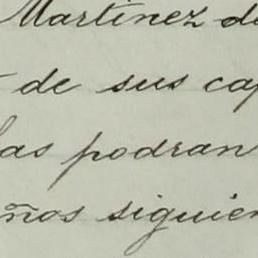 Martinez de
de sus cap
las podran
ños siguien